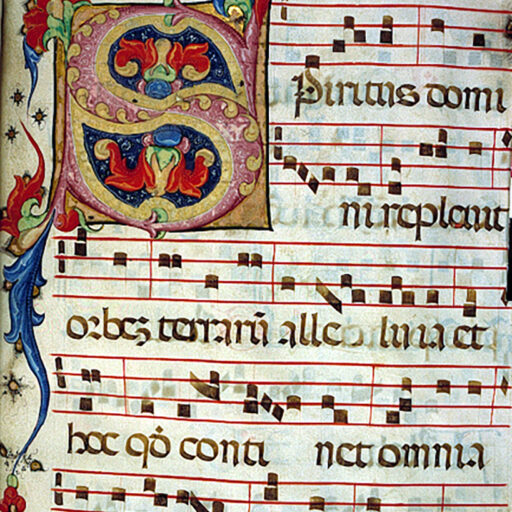 Spiritus domi
ni repleuit
orbez terrarū alle luia et
hoc qō conti net omnia